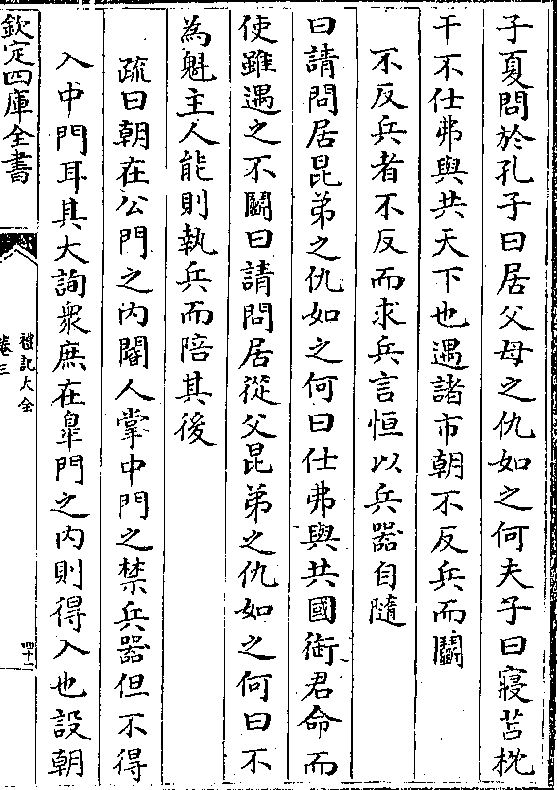 子夏問於孔子曰居父母之仇如之何夫子曰寢苫枕
干不仕弗與共天下也遇諸市朝不反兵而鬭
不反兵者不反而求兵言恒以兵器自隨
曰請問居昆弟之仇如之何曰仕弗與共國銜君命而
使雖遇之不鬭曰請問居從父昆弟之仇如之何曰不
為魁主人能則執兵而陪其後
疏曰朝在公門之内閽人掌中門之禁兵器但不得
入中門耳其大詢衆庶在臯門之内則得入也設朝
欽定四庫全書
禮記大全
卷三
四十二